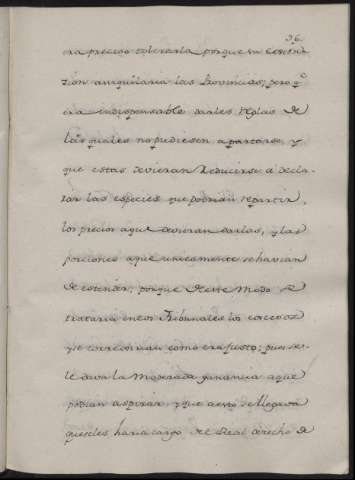 96.
era preciso tolerarla porque su extin
zion aniquilaria las Provincias; pero q.e
era indispensable darles Reglas de
las quales no pudiesen apartarse, y
que estas devieran Reducirse á decla-
rar las especies que podrian repartir,
los precios aque devieran darlas, y las
porciones aque unicamente se havian
de estender; porque de este modo se
trataria en los Tribunales los excesos
y se corregirian como era justo; pues se-
le dava la moderada ganancia aque
podian aspirar, y que aesto se llegava
que seles haria cargo del Real derecho de